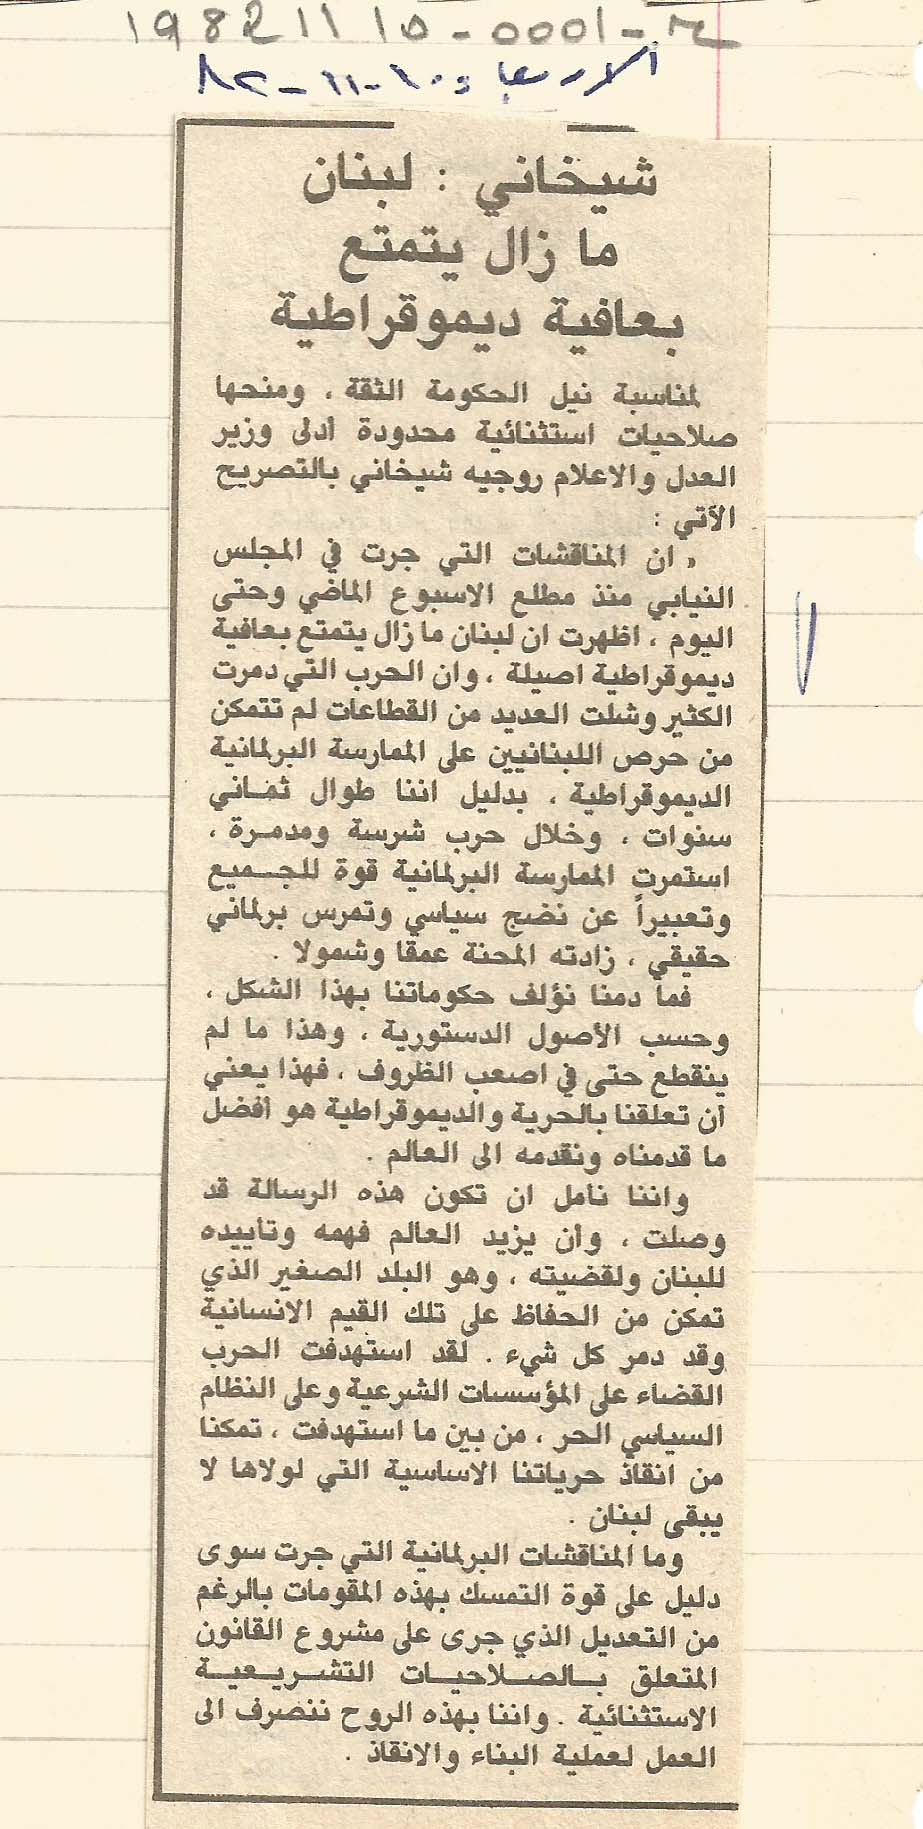 19821110-0001-
الاربعاء ١٠-١١-٨٢
شيخاني : لبنان
ما زال يتمتع
بعافية ديموقراطية
لمناسبة نيل الحكومة الثقة ، ومنحها
صلاحيات استثنائية محدودة أدلى وزير
العدل والاعلام روجيه شيخاني بالتصريح
الآتي :
« ان المناقشات التي جرت في المجلس
النيابي منذ مطلع الاسبوع الماضي وحتى
اليوم ، اظهرت ان لبنان ما زال يتمتع بعافية
ديموقراطية اصيلة ، وان الحرب التي دمرت
الكثير وشلت العديد من القطاعات لم تتمكن
من حرص اللبنانيين على الممارسة البرلمانية
الديموقراطية ، بدليل اننا طوال ثماني
سنوات ، وخلال حرب شرسة ومدمرة ،
استمرت الممارسة البرلمانية قوة للجميع
وتعبيراً عن نضج سياسي وتمرس برلماني
حقيقي ، زادته المحنة عمقا وشمولا .
فما دمنا نؤلف حكوماتنا بهذا الشكل ،
وحسب الأصول الدستورية ، وهذا ما لم
ينقطع حتى في اصعب الظروف ، فهذا يعني
أن تعلقنا بالحرية والديموقراطية هو أفضل
ما قدمناه ونقدمه الى العالم .
واننا نأمل ان تكون هذه الرسالة قد
وصلت ، وأن يزيد العالم فهمه وتأييده
للبنان ولقضيته ، وهو البلد الصغير الذي
تمكن من الحفاظ على تلك القيم الانسانية
وقد دمر كل شيء . لقد استهدفت الحرب
القضاء على المؤسسات الشرعية وعلى النظام
السياسي الحر ، من بين ما استهدفت ، تمكنا
من انقاذ حرياتنا الاساسية التي لولاها لا
يبقى لبنان .
وما المناقشات البرلمانية التي جرت سوى
دليل على قوة التمسك بهذه المقومات بالرغم
من التعديل الذي جرى على مشروع القانون
المتعلق بالصلاحيات التشريعية
الاستثنائية . واننا بهذه الروح ننصرف الى
العمل لعملية البناء والانقاذ .